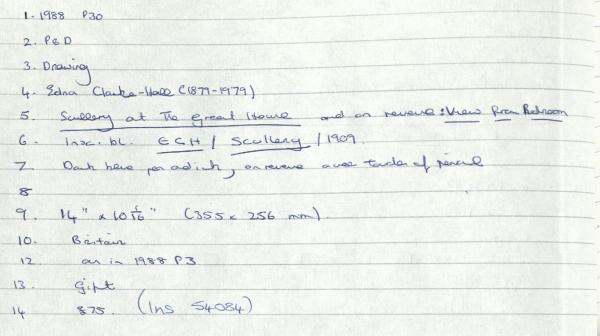 1. 1988 P30
2. P&D
3. Drawing
4. Edna Clarke-Hall (1879-1979)
5. Scullery at The Great House and on reverse: View from Bedroom
6. Insc. bl. ECH / Scullery / 1909.
7 Dark and, on reverse over of pencil
8
9. 14" x 10 1/16" (355 x 256 mm).
10. Britain
12. as in 1988 P3
13. Gift
14 £75. (Ins 54084)